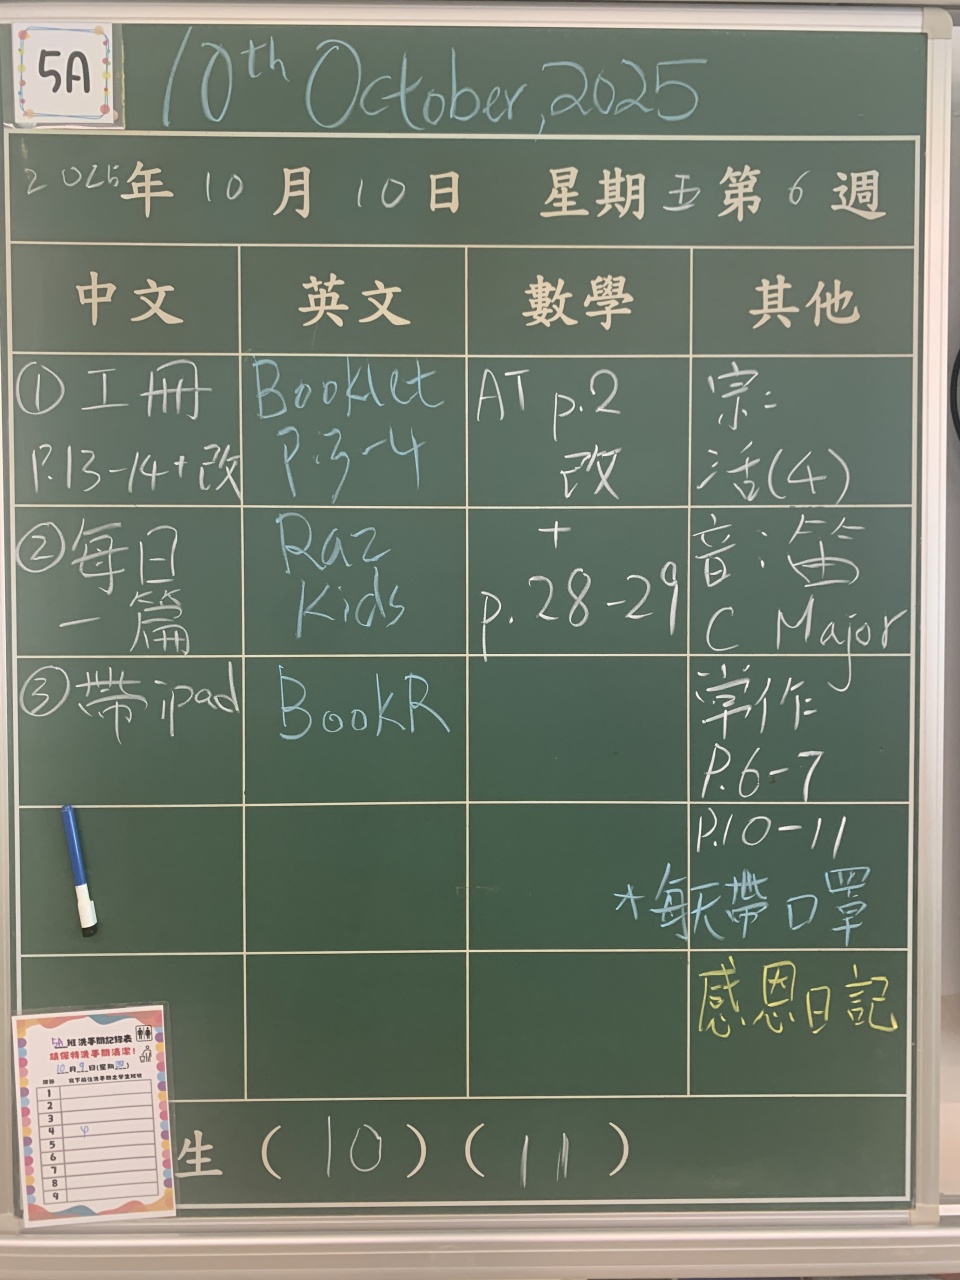 5A
10th October, 2025
2025年10月10日 星期五第6週
中文
英文
數學
其他
①工冊
P.13-14+改
②每日
一篇
③帶ipad
Booklet
P.3-4
Raz
Kids
BookR
AT p.2
改
+
p.28-29
宗:
活(4)
音:笛
C Major
常作
P.6-7
P.10-11
*每天帶口罩
感恩日記
5A班洗手間記錄表
請保持洗手間清潔!
10月9日(星期四)
課節
1
2
3
4 φ
5
6
7
8
9
生(10)(11)